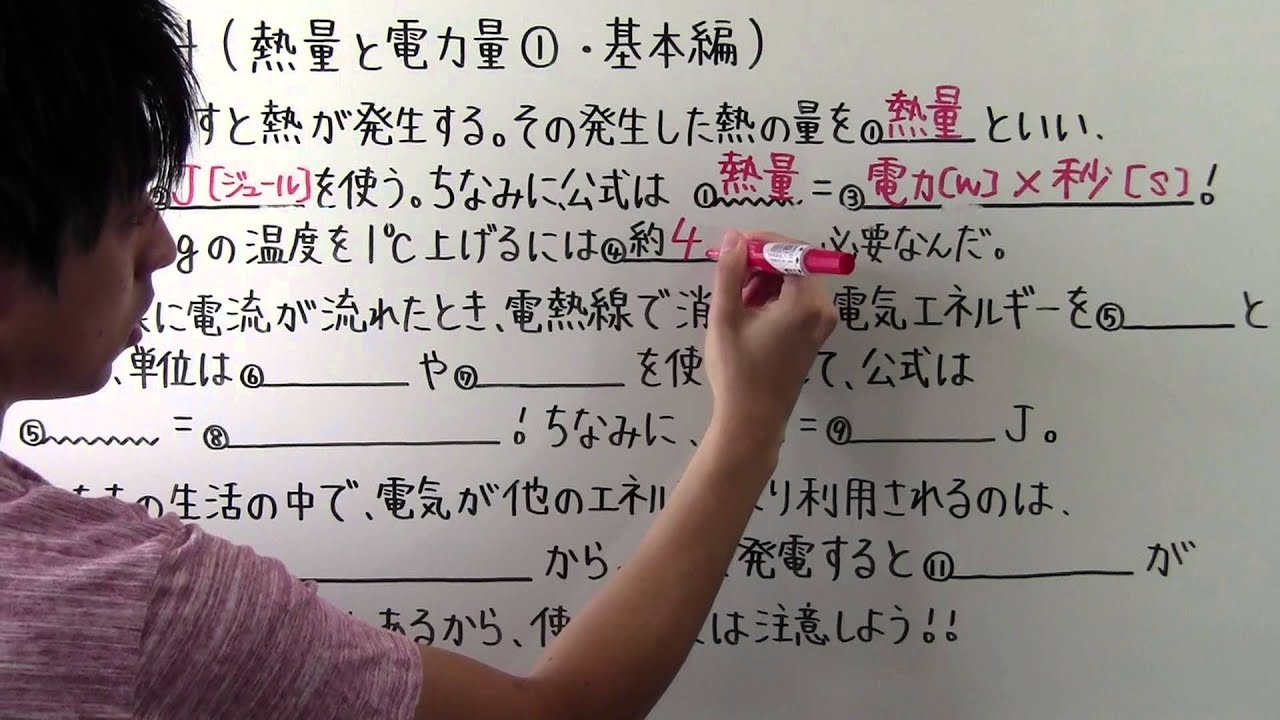 (熱量と電力量①・基本編)
すと熱が発生する。その発生した熱の量を①熱量といい、
②J[ジュール]を使う。ちなみに、公式は ①熱量=③電力[W]×秒[s]!
gの温度を1℃上げるには④約4 必要なんだ。
に電流が流れたとき、電熱線で消 電気エネルギーを⑤ と
、単位は⑥ や⑦ を使 て、公式は
⑤ = ⑧ !ちなみに、 =⑨ J。
の生活の中で、電気が他のエネル り利用されるのは、
から、 発電すると⑪ が
あるから、使 は注意しよう!!